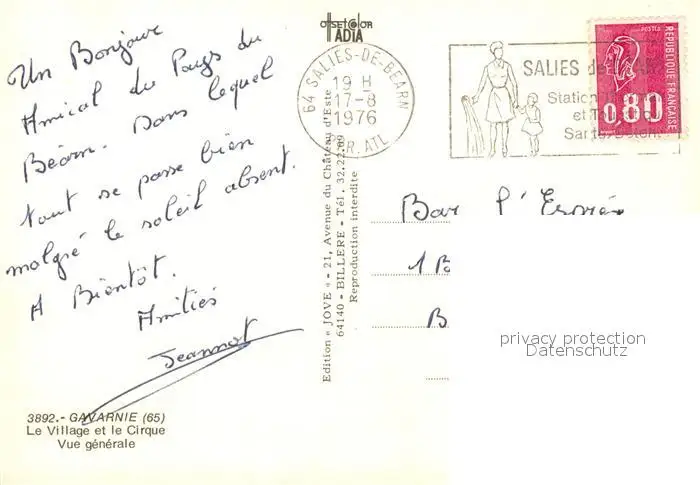 Un Bonjour
Amical du Pays du
Béarn. Dans lequel
tout se passe bien
malgré le soleil absent.
A Bientôt.
Amitiés
Jeannot
3892.- GAVARNIE (65)
Le Village et le Cirque
Vue générale
offset color
IADIA
Edition « JOVE » - 21, Avenue du Château d'Este
64140 - BILLERE - Tél. 32.22.09
Reproduction interdite
64 SALIES-DE-BEARN
19 H
17-8
1976
ATL
SALIES de
Station
et
POSTES
REPUBLIQUE FRANÇAISE
0,80
Bar l'
1 B
B
privacy protection
Datenschutz